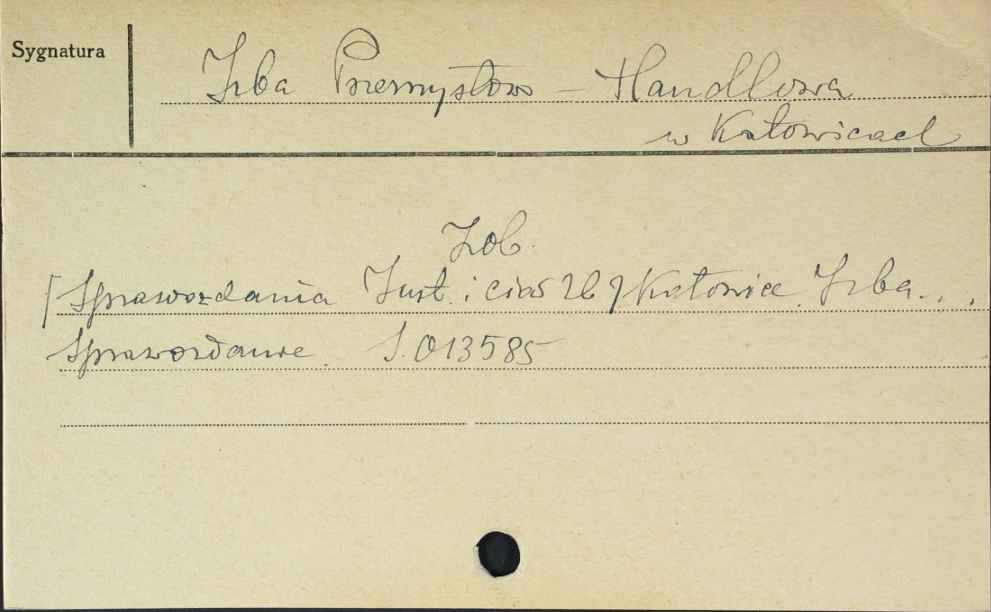 Sygnatura
Izba Przemysłow - Handlowa
w Katowicach
Zob.
[Sprawozdania Inst. i ciał zb] Katowice. Izba...
Sprawozdanie. S. 013585